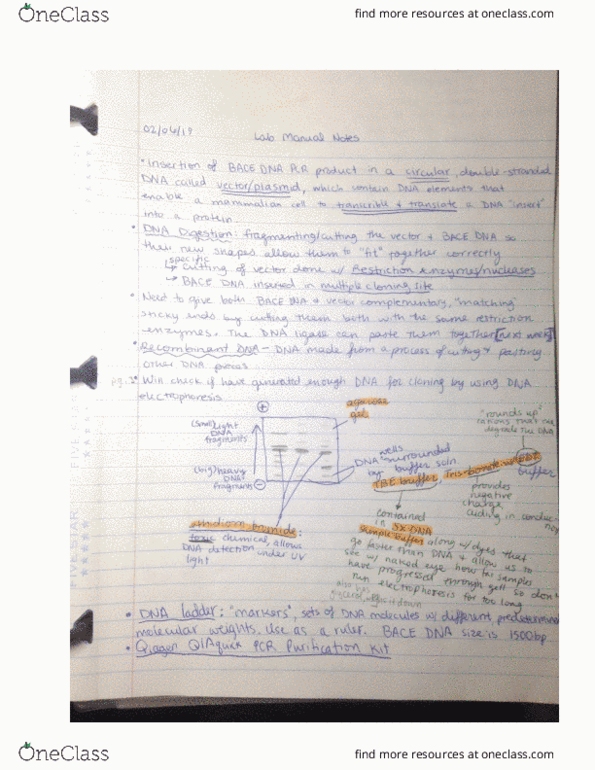 OneClass
find more resources at oneclass.com
02/04/19
Lab Manual Notes
• Insertion of BACE DNA PCR product in a circular, double-stranded
DNA called vector/plasmid, which contain DNA elements that
enable a mammalian cell to transcribe & translate a DNA "insert"
into a protein.
• DNA Digestion: fragmenting/cutting the vector & BACE DNA so
their new shapes allow them to "fit" together correctly
specific
↳ cutting of vector done w/ Restriction enzymes/nucleases
↳ BACE DNA inserted in multiple cloning site
• Need to give both BACE DNA & vector complementary, "matching"
sticky ends by cutting them both with the same restriction
enzymes. The DNA ligase can paste them together [next week]
• Recombinant DNA - DNA made from a process of cutting & pasting
other DNA pieces
pg. 2
• Will check if have generated enough DNA for cloning by using DNA
electrophoresis
+
agarose
gel
(small) light
DNA
fragments
(big) heavy
DNA
fragments
-
wells
DNA surrounded
by buffer soln
"rounds up"
cations that
degrade the DNA
TBE buffer, Tris-borate
buffer
provides
negative
charge,
aiding in
contained
in 5X DNA
sample buffer along w/ dyes that
go faster than DNA & allow us to
see w/ naked eye how far samples
have progressed through gel so don't
run electrophoresis for too long
bromide:
toxic chemical, allows
DNA detection under UV
light
• DNA ladder: "markers", sets of DNA molecules w/ different,
molecular weights. Use as a ruler. BACE DNA size is 1500bp
• Qiagen QIAquick PCR Purification Kit
OneClass
find more resources at oneclass.com